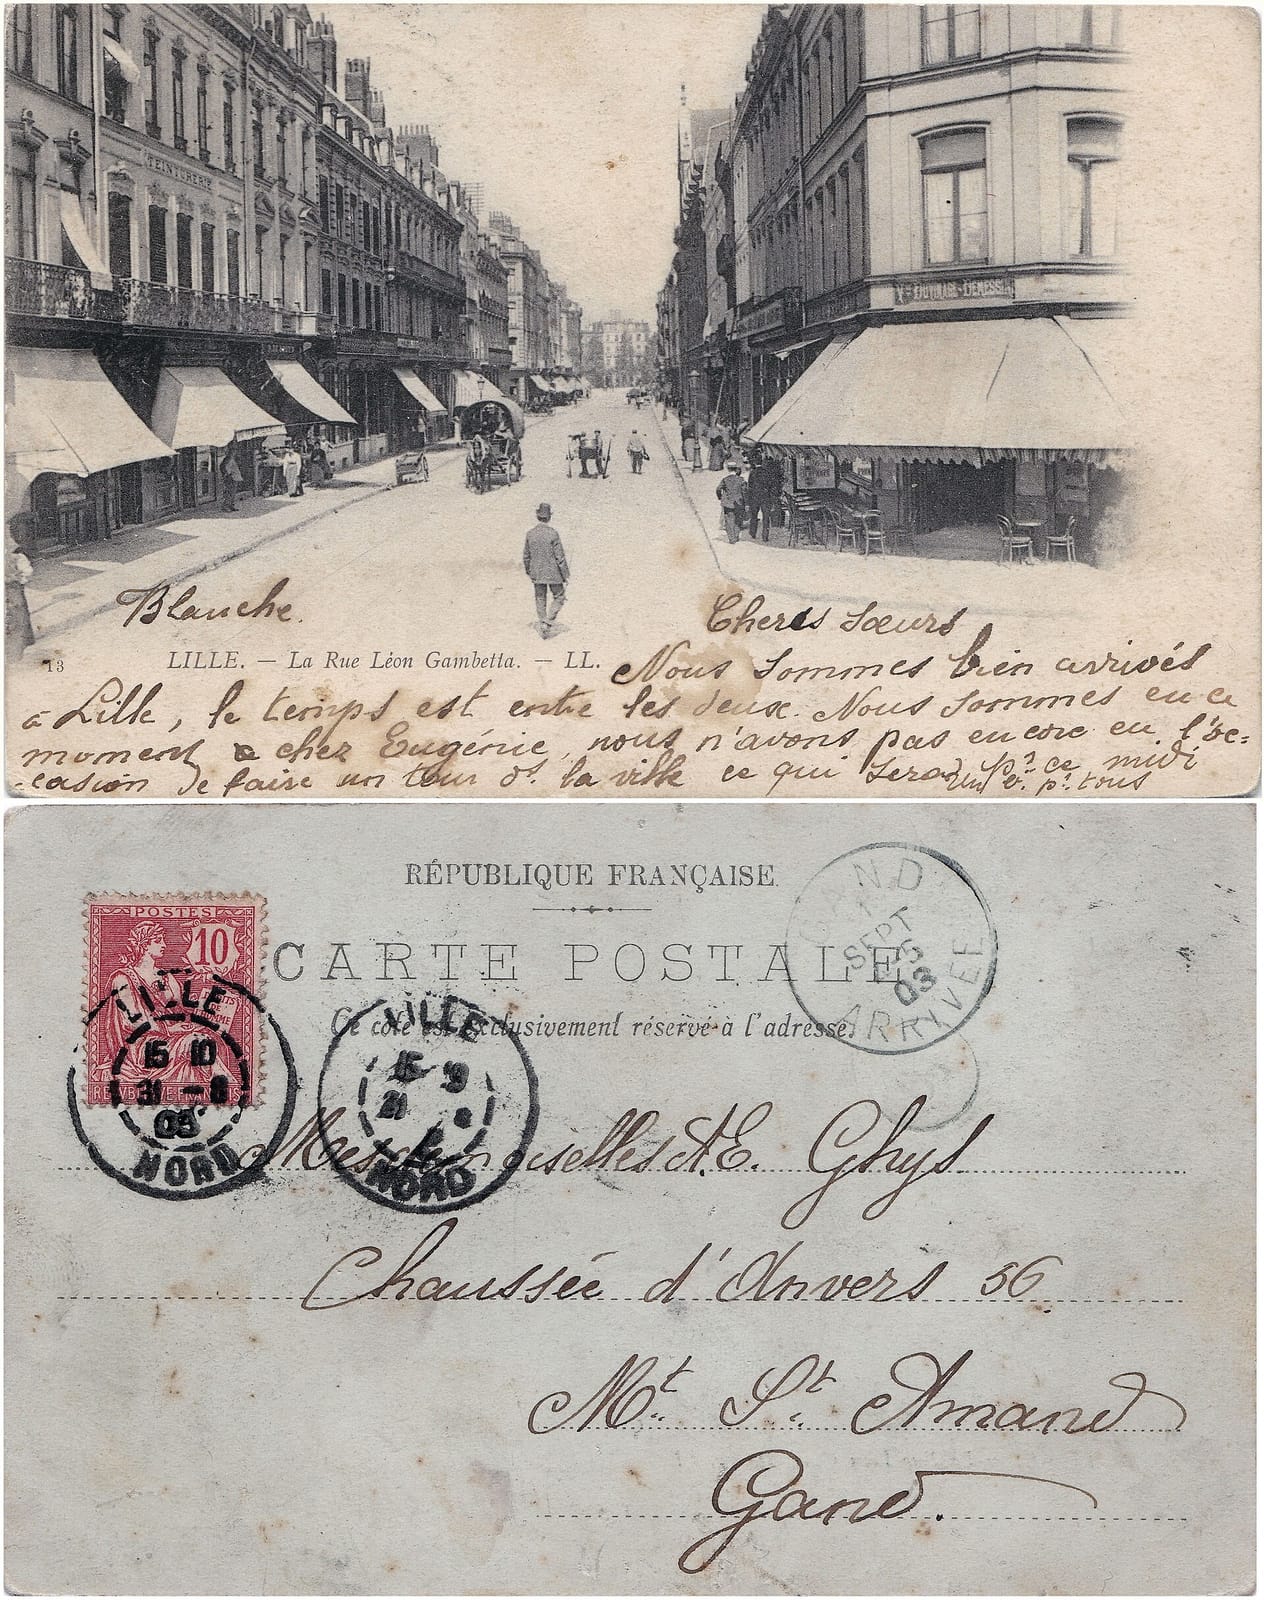 TEINTURERIE
Blanche.
Cheres sœurs
13 LILLE. — La Rue Léon Gambetta. — LL.
Nous sommes bien arrivés
à Lille, le temps est entre les deux. Nous sommes en ce
moment chez Eugénie, nous n'avons pas encore eu l'oc=
casion de faire un tour ds. la ville ce qui sera pr. ce midi
pr. tous
RÉPUBLIQUE FRANÇAISE
CARTE POSTALE
Ce côté est exclusivement réservé à l'adresse.
POSTES
10
DROITS DE L'HOMME
REPUBLIQUE FRANÇAISE
LILLE
15 10
31 - 8
03
NORD
LILLE
NORD
GAND
1
SEPT
03
ARRIVÉE
Mesdemoiselles A.E. Ghys
Chaussée d'Anvers 56
Mt. St. Amand
Gand.